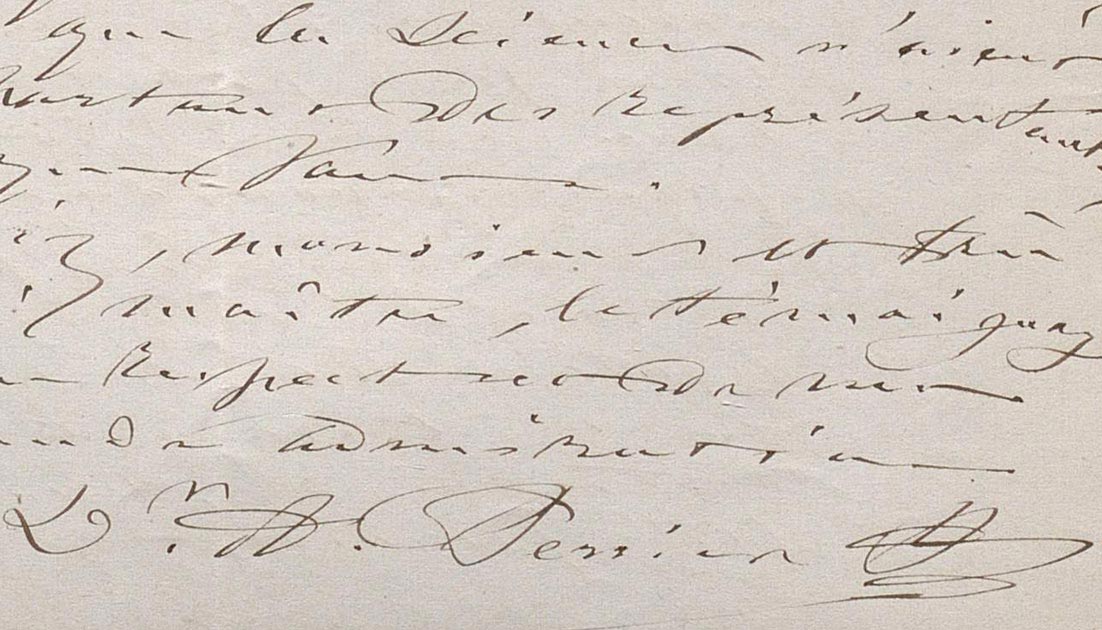 que la Science n'aient
partout des représentants
que Vous.
, monsieur et très
maître, le témoignag
respect et de ma
admiration
Dr. H. Perrier